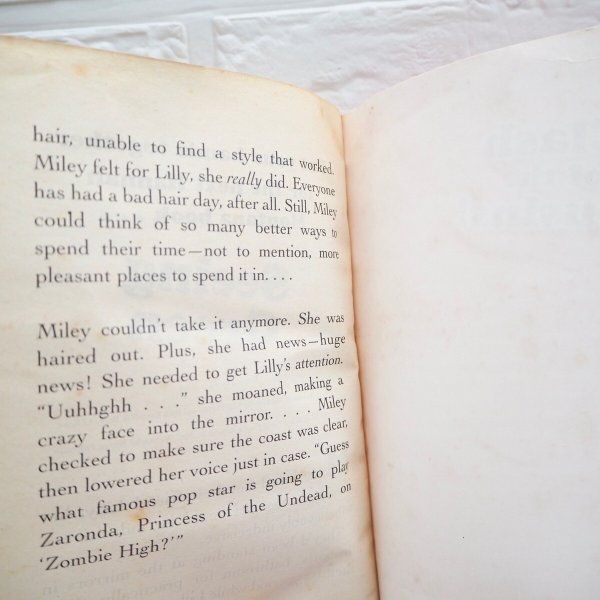 hair, unable to find a style that worked.
Miley felt for Lilly, she really did. Everyone
has had a bad hair day, after all. Still, Miley
could think of so many better ways to
spend their time—not to mention, more
pleasant places to spend it in. . . .
Miley couldn't take it anymore. She was
haired out. Plus, she had news—huge
news! She needed to get Lilly's attention.
"Uuhhghh . . ." she moaned, making a
crazy face into the mirror. . . . Miley
checked to make sure the coast was clear,
then lowered her voice just in case. "Guess
what famous pop star is going to play
Zaronda, Princess of the Undead, on
'Zombie High?'"